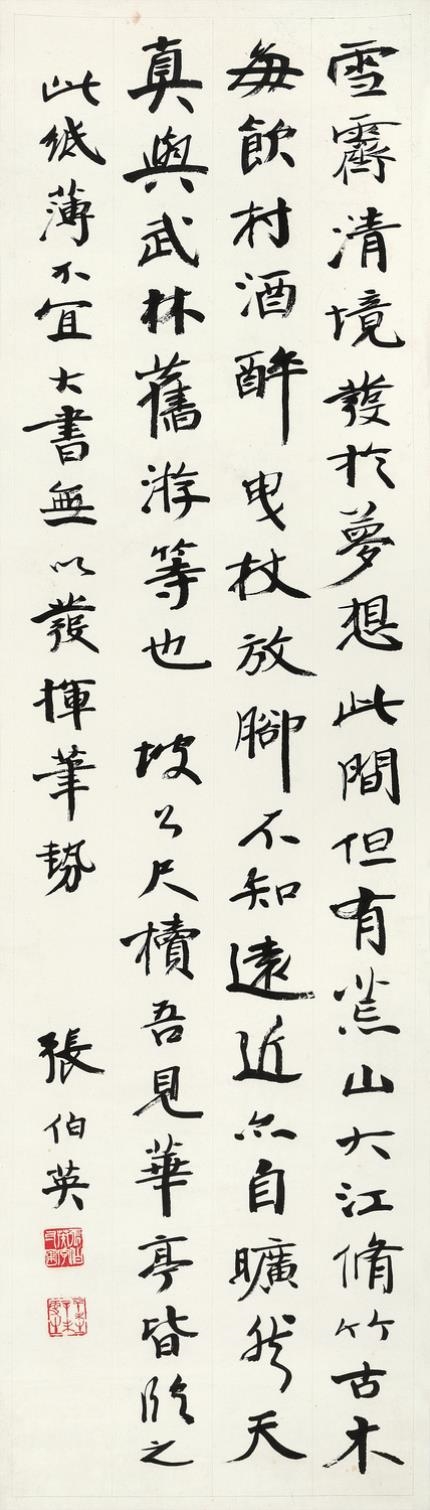 雪霽清境發於夢想此間但有荒山大江脩竹古木
每飲村酒醉曳杖放腳不知遠近亦自曠然天
真與武林舊游等也 坡公尺櫝吾見華亭皆臨之
此紙薄不宜大書無以發揮筆勢 張伯英